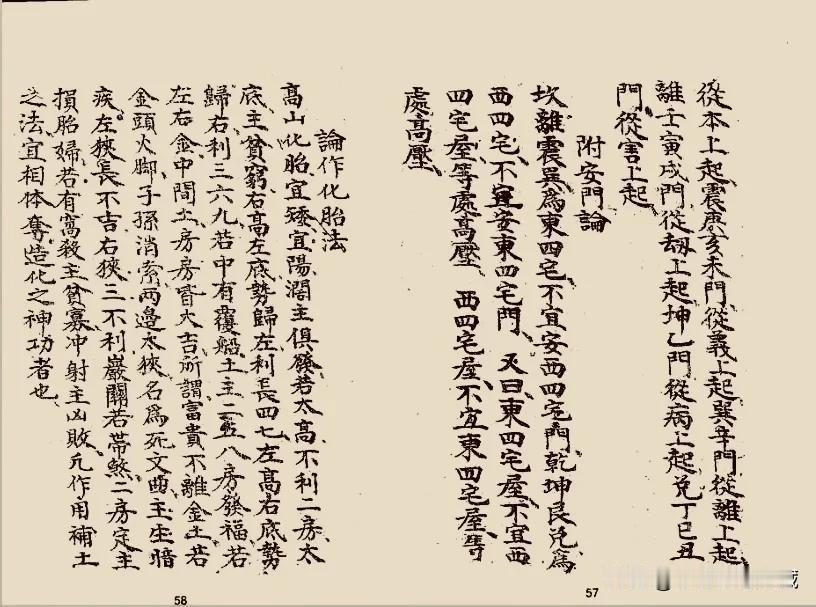 從本上起震庚亥未門從義上起巽辛門從離上起
離壬寅戌門從劫上起坤乙門從病上起兌丁巳丑
門從害上起
附安門論
坎離震巽為東四宅不宜安西四宅門乾坤艮兌為
西四宅不宜安東四宅門 又曰東四宅屋不宜西
四宅屋等處高壓 西四宅屋不宜東四宅屋等
處高壓
57
論作化胎法
高山化胎宜矮宜陽濶主俱發若太高不利二房太
底主貧窮右高左底勢歸左利長四七左高右底勢
歸右利三六九若中有覆船土主二五八房發福若
左右金中間土房房皆大吉所謂富貴不離金土若
金頭火脚子孫消索兩邉太狹名為死文曲主生暗
疾左狹長不吉右狹三不利巖關若帯煞二房定主
損胎婦若有窩殺主貧寡冲射主凶敗凢作用補土
之法宜相体奪造化之神功者也
58
藏